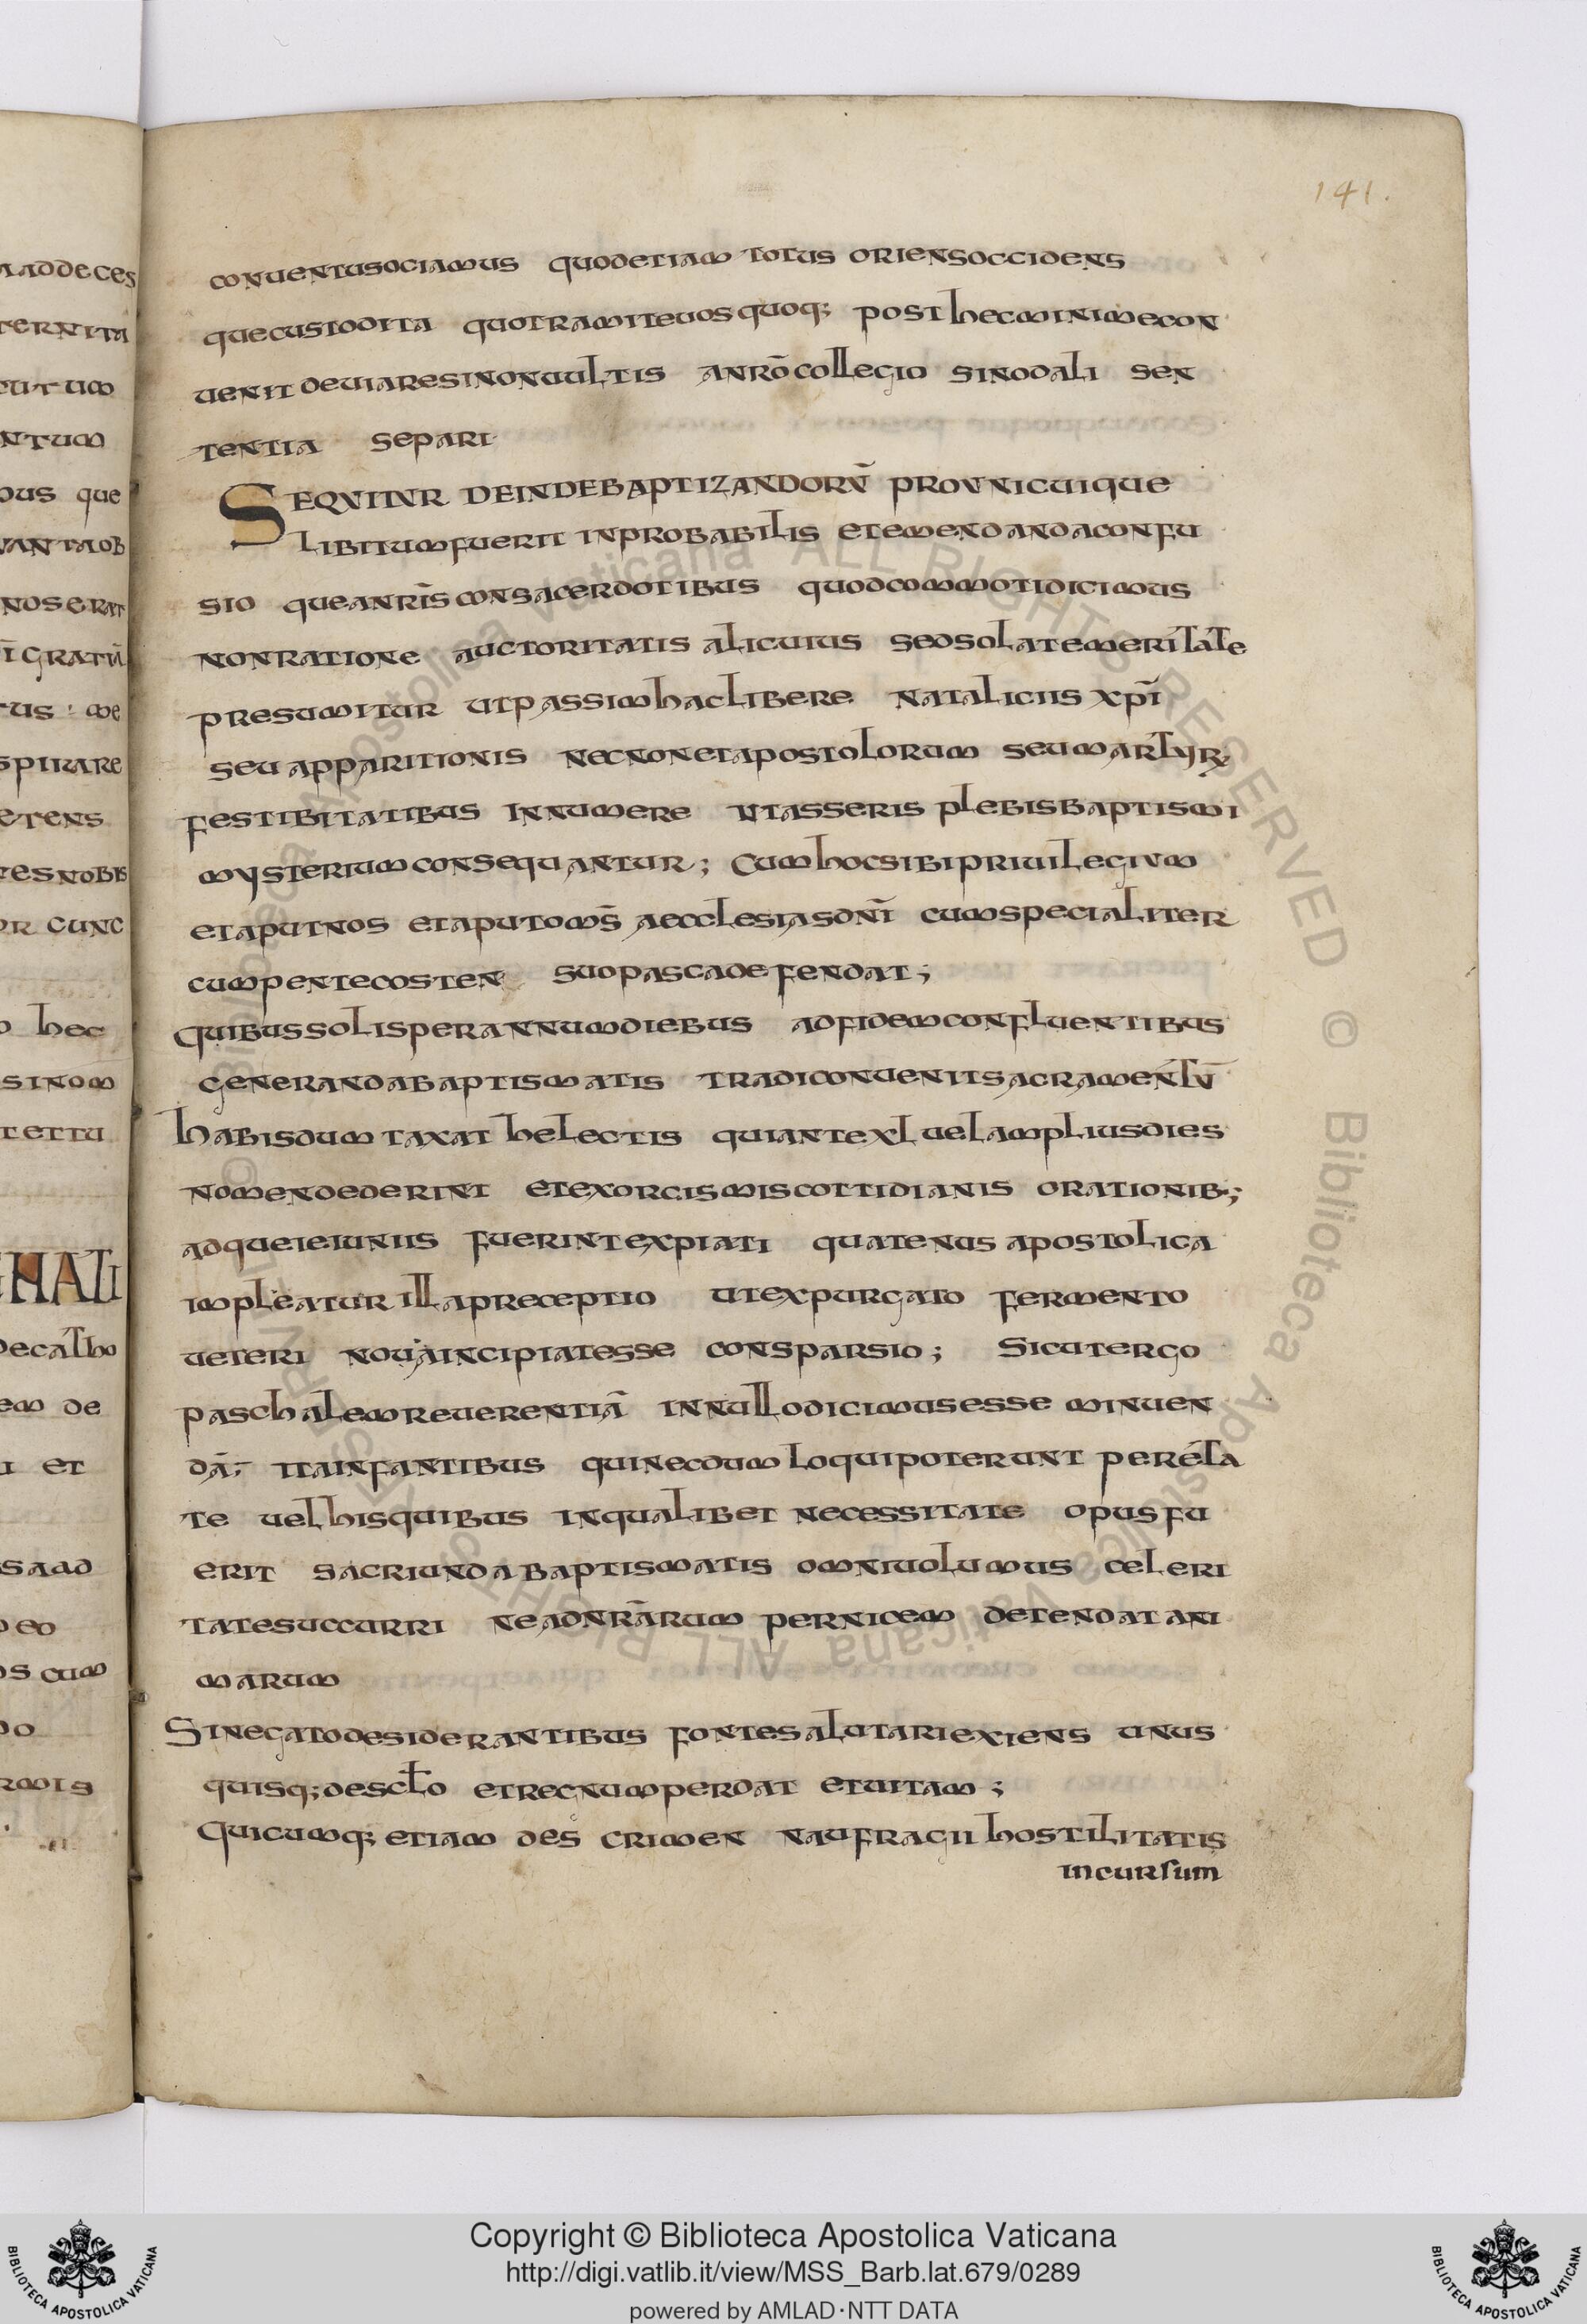 141.
conuentu sociamus quod etiam totus oriens occidens
que custodita quo tramite uos quoq; post hec minime con
uenit deuiare si non uultis a nrō collegio sinodali sen
tentia separi
SEQVITVR DEINDE BAPTIZANDORV̄ PROVNICUIQUE
LIBITUM fuerit inprobabilis et emendanda confu
sio que a nrīs consacerdotibus quod commoti dicimus
non ratione auctoritatis alicuius sed sola temeritate
presumitur ut passim hac libere nataliciis xpī
seu apparitionis necnon et apostolorum seu martyr
festibitatibus innumere ut asseris plebis baptismi
mysterium consequantur; cum hoc sibi priuilegium
et aput nos et aput oms̄ aecclesias dnī cum specialiter
cum pentecosten suo pasca defendat;
quibus solis per annum diebus ad fidem confluentibus
generanda baptismatis tradi conuenit sacramentū
habis dum taxat helectis qui ante xl uel amplius dies
nomen dederint et exorcismis cottidianis orationib;
adque ieiuniis fuerint expiati quatenus apostolica
impleatur illa preceptio ut expurgato fermento
ueteri noua incipiat esse consparsio; Sicut ergo
paschalem reuerentiā in nullo dicimus esse minuen
dā; ita infantibus qui necdum loqui poterunt per eta
te uel his quibus in qualibet necessitate opus fu
erit sacri unda baptismatis omni uolumus celeri
tate succurri ne ad nrārum pernicem detendat ani
marum
Si negato desiderantibus fonte salutari exiens unus
quisq; de sclo et regnum perdat et uitam;
quicumq; etiam des crimen naufragii hostilitatis
incursum
Copyright © Biblioteca Apostolica Vaticana
http://digi.vatlib.it/view/MSS_Barb.lat.679/0289
powered by AMLAD·NTT DATA